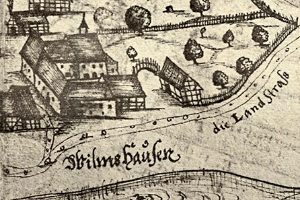 die Landstraß
Wilmshausen